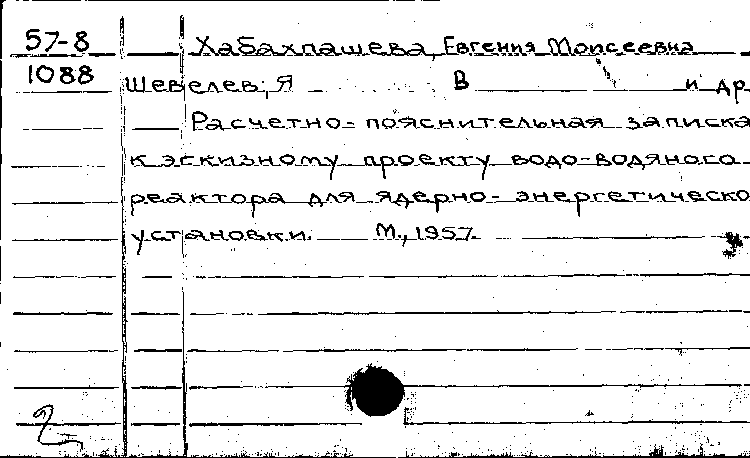 57-8 Хабахпашева, Евгения Моисеевна
1088 Шевелев, Я В и др
Расчетно-пояснительная записка
к эскизному проекту водо-водяного
реактора для ядерно-энергетическо
установки. М., 1957.